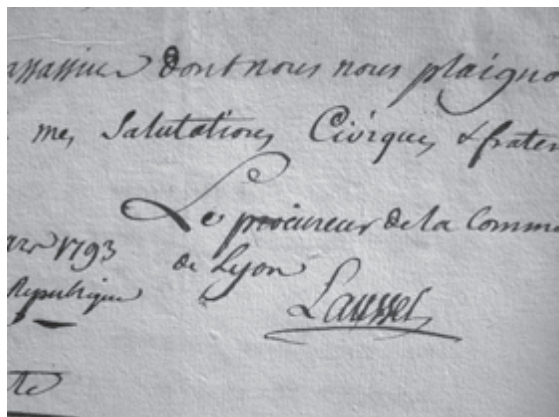 assassins dont nous nous plaigno
mes Salutations Civiques & frater
Le procureur de la Commu
de Lyon
1793
Republique
Laussel